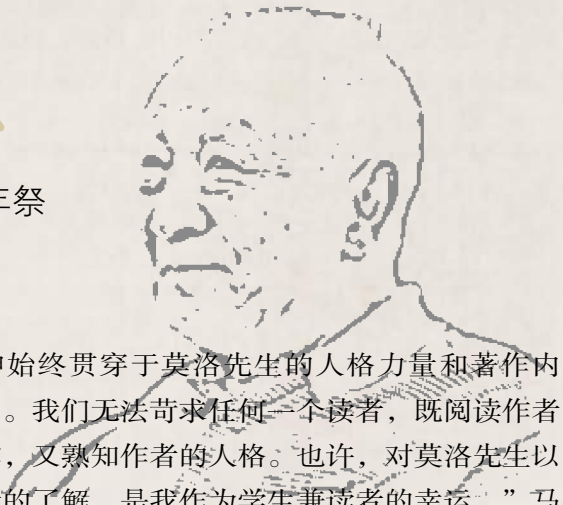 年祭
中始终贯穿于莫洛先生的人格力量和著作内
。我们无法苛求任何一个读者，既阅读作者
，又熟知作者的人格。也许，对莫洛先生以
的了解，是我作为学生兼读者的幸运。”马